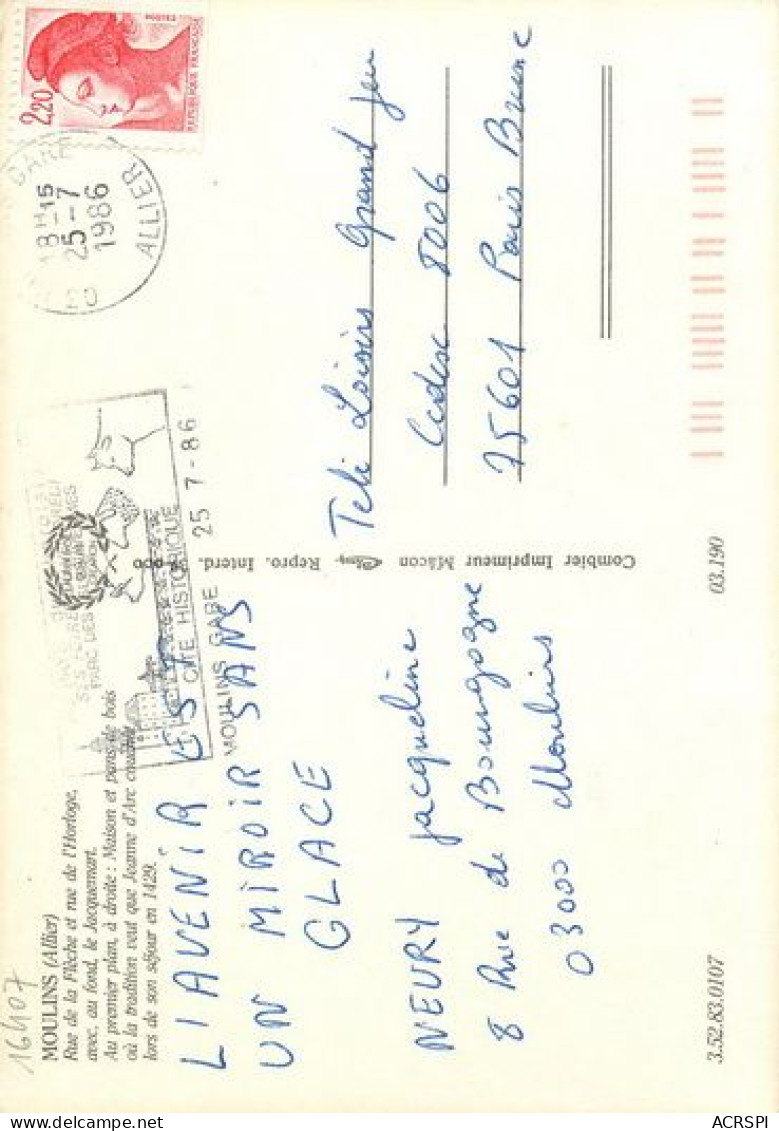 16407
MOULINS (Allier)
Rue de la Flèche et rue de l'Horloge,
avec, au fond, le Jacquemart.
Au premier plan, à droite : Maison et pans de bois
où la tradition veut que Jeanne d'Arc coucha
lors de son séjour en 1429.
L'AVENIR EST
UN MIROIR SANS
GLACE
NEURY Jacqueline
8 Rue de Bourgogne
03000 Moulins
3.52.83.0107
03.190
Combier Imprimeur Mâcon Repro. Interd.
2,20
REPUBLIQUE FRANÇAISE
GARE
18H15
25-7
1986
03
ALLIER
PARC DES
CITE HISTORIQUE
MOULINS GARE
25 7-86
Tele Loisirs Grand Jeu
Cedex 8006
75601 Paris Brune
ACRSPI